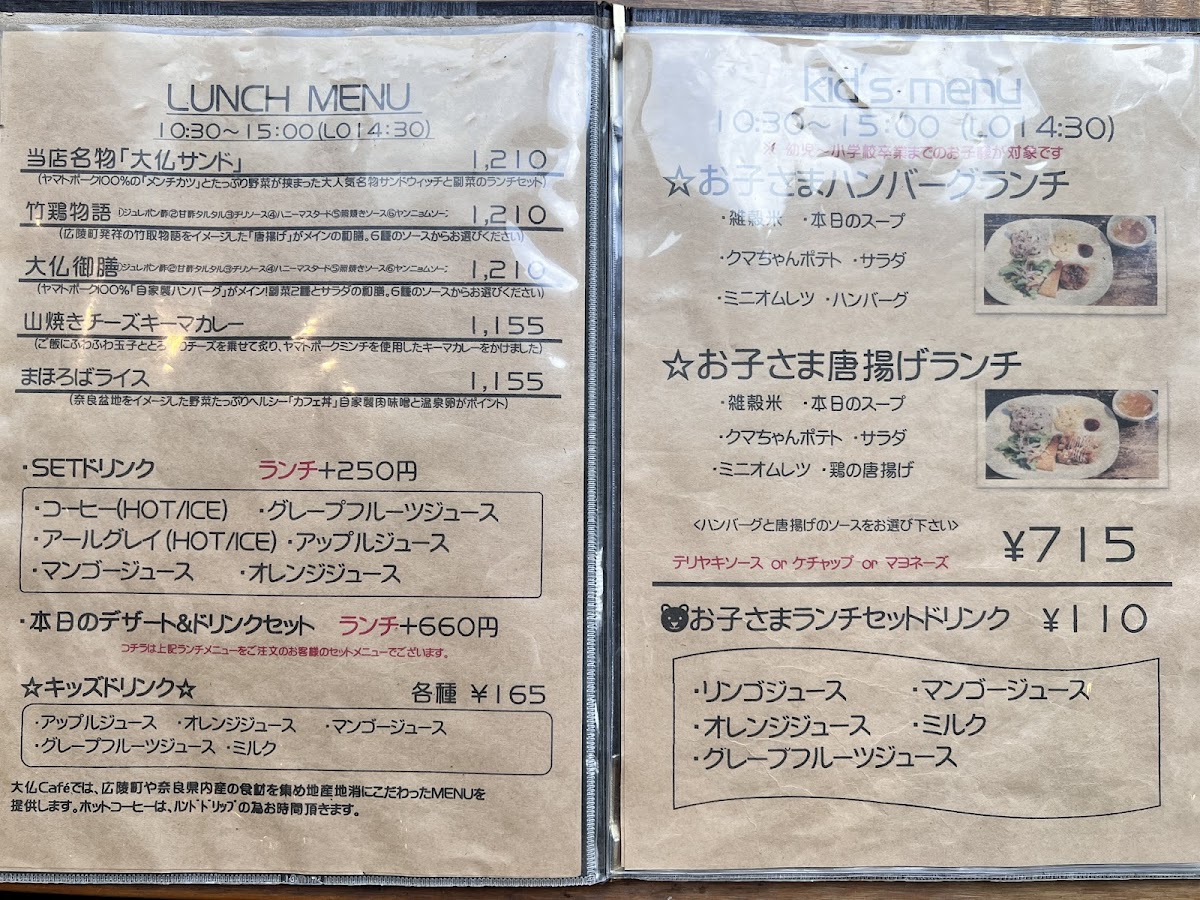 LUNCH MENU
10:30～15:00(LO14:30)
当店名物「大仏サンド」 1,210
(ヤマトポーク100%の「メンチカツ」とたっぷり野菜が挟まった大人気名物サンドウィッチと副菜のランチセット)
竹鶏物語 ①ジュレポン酢②甘酢タルタル③チリソース④ハニーマスタード⑤照焼きソース⑥ヤンニョムソース 1,210
(広陵町発祥の竹取物語をイメージした「唐揚げ」がメインの和膳。6種のソースからお選びください)
大仏御膳 ①ジュレポン酢②甘酢タルタル③チリソース④ハニーマスタード⑤照焼きソース⑥ヤンニョムソース 1,210
(ヤマトポーク100%「自家製ハンバーグ」がメイン!副菜2種とサラダの和膳。6種のソースからお選びください)
山焼きチーズキーマカレー 1,155
(ご飯にふわふわ玉子ととろとろのチーズを乗せて炙り、ヤマトポークミンチを使用したキーマカレーをかけました)
まほろばライス 1,155
(奈良盆地をイメージした野菜たっぷりヘルシー「カフェ丼」自家製肉味噌と温泉卵がポイント)
・SETドリンク ランチ+250円
・コーヒー(HOT/ICE) ・グレープフルーツジュース
・アールグレイ(HOT/ICE) ・アップルジュース
・マンゴージュース ・オレンジジュース
・本日のデザート&ドリンクセット ランチ+660円
コチラは上記ランチメニューをご注文のお客様のセットメニューでございます。
☆キッズドリンク☆ 各種 ¥165
・アップルジュース ・オレンジジュース ・マンゴージュース
・グレープフルーツジュース ・ミルク
大仏Caféでは、広陵町や奈良県内産の食材を集め地産地消にこだわったMENUを
提供します。ホットコーヒーは、ハンドドリップの為お時間頂きます。
kid's menu
10:30～15:00 (LO14:30)
※ 幼児～小学校卒業までのお子様が対象です
☆お子さまハンバーグランチ
・雑穀米 ・本日のスープ
・クマちゃんポテト ・サラダ
・ミニオムレツ ・ハンバーグ
☆お子さま唐揚げランチ
・雑穀米 ・本日のスープ
・クマちゃんポテト ・サラダ
・ミニオムレツ ・鶏の唐揚げ
<ハンバーグと唐揚げのソースをお選び下さい>
¥715
テリヤキソース or ケチャップ or マヨネーズ
お子さまランチセットドリンク ¥110
・リンゴジュース ・マンゴージュース
・オレンジジュース ・ミルク
・グレープフルーツジュース